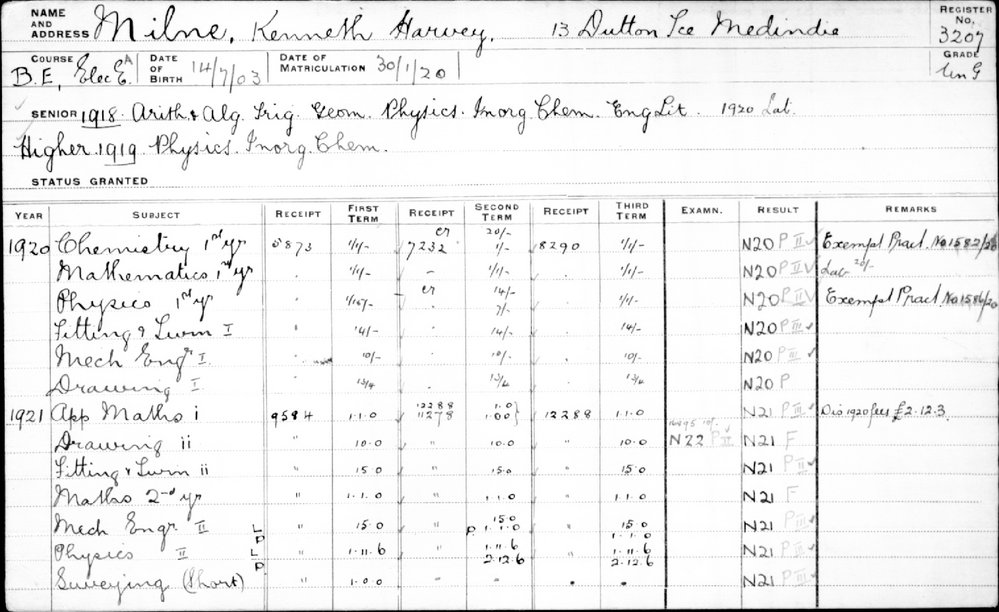 NAME AND ADDRESS Milne, Kenneth Harvey. 13 Dutton Tce Medindie REGISTER No. 3207
COURSE B.E, Elec E. A DATE OF BIRTH 14/7/03 DATE OF MATRICULATION 30/1/20 GRADE Un G
SENIOR 1918. Arith. & Alg. Trig. Geom. Physics. Inorg. Chem. Eng Lit. 1920 Lat.
Higher 1919 Physics. Inorg. Chem.
STATUS GRANTED
YEAR SUBJECT RECEIPT FIRST TERM RECEIPT SECOND TERM RECEIPT THIRD TERM EXAMN. RESULT REMARKS
1920 Chemistry 1st yr 5873 1/1/- 7232 cr 20/- 1/- 8290 1/1/- N20 P II ✓ Exempt Pract. No 1582/20
Mathematics 1st yr 1/1/- 1/1/- 1/1/- N20 P II ✓ Lac 20/-
Physics 1st yr cr 14/- 7/- 1/1/- N20 P II ✓ Exempt Pract. No 1586/20
Fitting & Turn I 14/- 14/- 14/- N20 P III ✓
Mech Engr I 10/- 10/- 10/- N20 P III ✓
Drawing I 13/4 13/4 13/4 N20 P
1921 App Maths i 9584 1.1.0 12288 11278 1.0 1.00} 12288 1.1.0 N21 P III ✓ Dis 1920 fees £2.12.3
Drawing ii " 10.0 " 10.0 " 10.0 N22 P II N21 F
Fitting & Turn ii " 15.0 " 15.0 " 15.0 N21 P II ✓
Maths 2nd yr " 1.1.0 " 1.1.0 " 1.1.0 N21 F
Mech Engr. II " 15.0 " 15.0 " 15.0 N21 P III ✓
Physics II L P L P " 1.11.6 " P 1.1.0 1.11.6 2.12.6 " 1.1.0 1.11.6 2.12.6 N21 P II ✓
Surveying (Short) " 1.0.0 " " . . N21 P III ✓